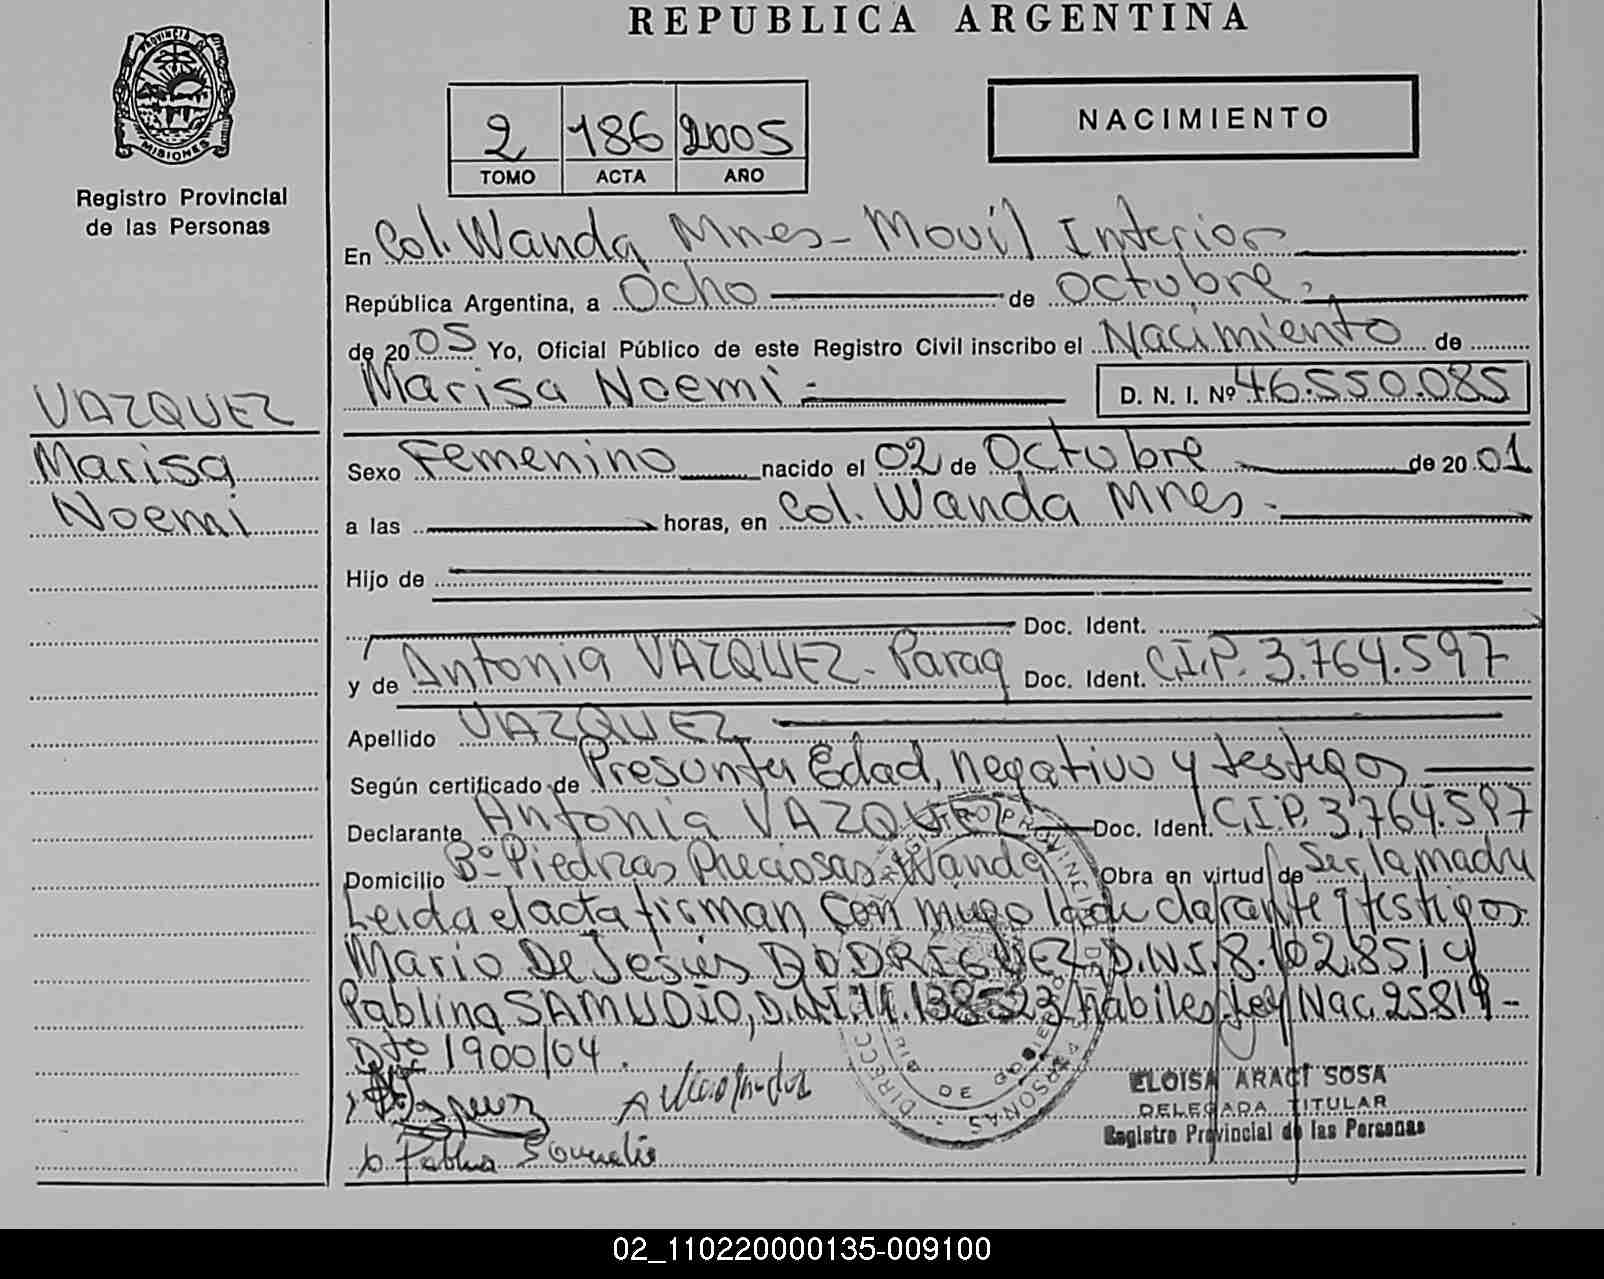 REPUBLICA ARGENTINA
PROVINCIA DE
MISIONES
Registro Provincial
de las Personas
2 186 2005
TOMO ACTA AÑO
NACIMIENTO
En Col. Wanda Mnes - Movil Interior
República Argentina, a Ocho de Octubre.
de 2005 Yo, Oficial Público de este Registro Civil inscribo el Nacimiento de
Marisa Noemi =
D. N. I. Nº 46.550.085
VAZQUEZ
Marisa
Noemi
Sexo Femenino nacido el 02 de Octubre de 2001
a las horas, en Col. Wanda Mnes -
Hijo de
Doc. Ident.
y de Antonia VAZQUEZ - Parag Doc. Ident. C.I.P. 3.764.597
Apellido VAZQUEZ
Según certificado de Presunta Edad, negativo y testigos
Declarante Antonia VAZQUEZ Doc. Ident. C.I.P. 3.764.597
Domicilio Bº Piedras Preciosas - Wanda Obra en virtud de Ser la madre
Leida el acta firman con migo la declarante y testigos
Mario De Jesús RODRIGUEZ, D.N.I. 8.102.851 y
Pablina SAMUDIO, D.N.I. 11.138.523 habiles, Ley Nac. 25819 -
Dto 1900/04.
ELOISA ARACI SOSA
DELEGADA TITULAR
Registro Provincial de las Personas
02_110220000135-009100